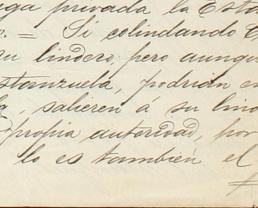 ga privada la Esta
= Si colindando
su lindero, pero aunque
stanzuela, podrian en
salieren á su lin
propia autoridad, por
lo es tambien el